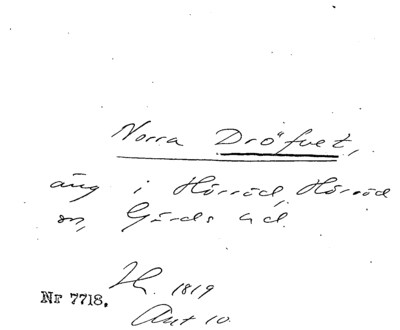 Norra Dröfvet,
äng i Hörröd, Hörröd
sn, Gärds hd.
H. 1819
Nr 7718.
Akt 10.